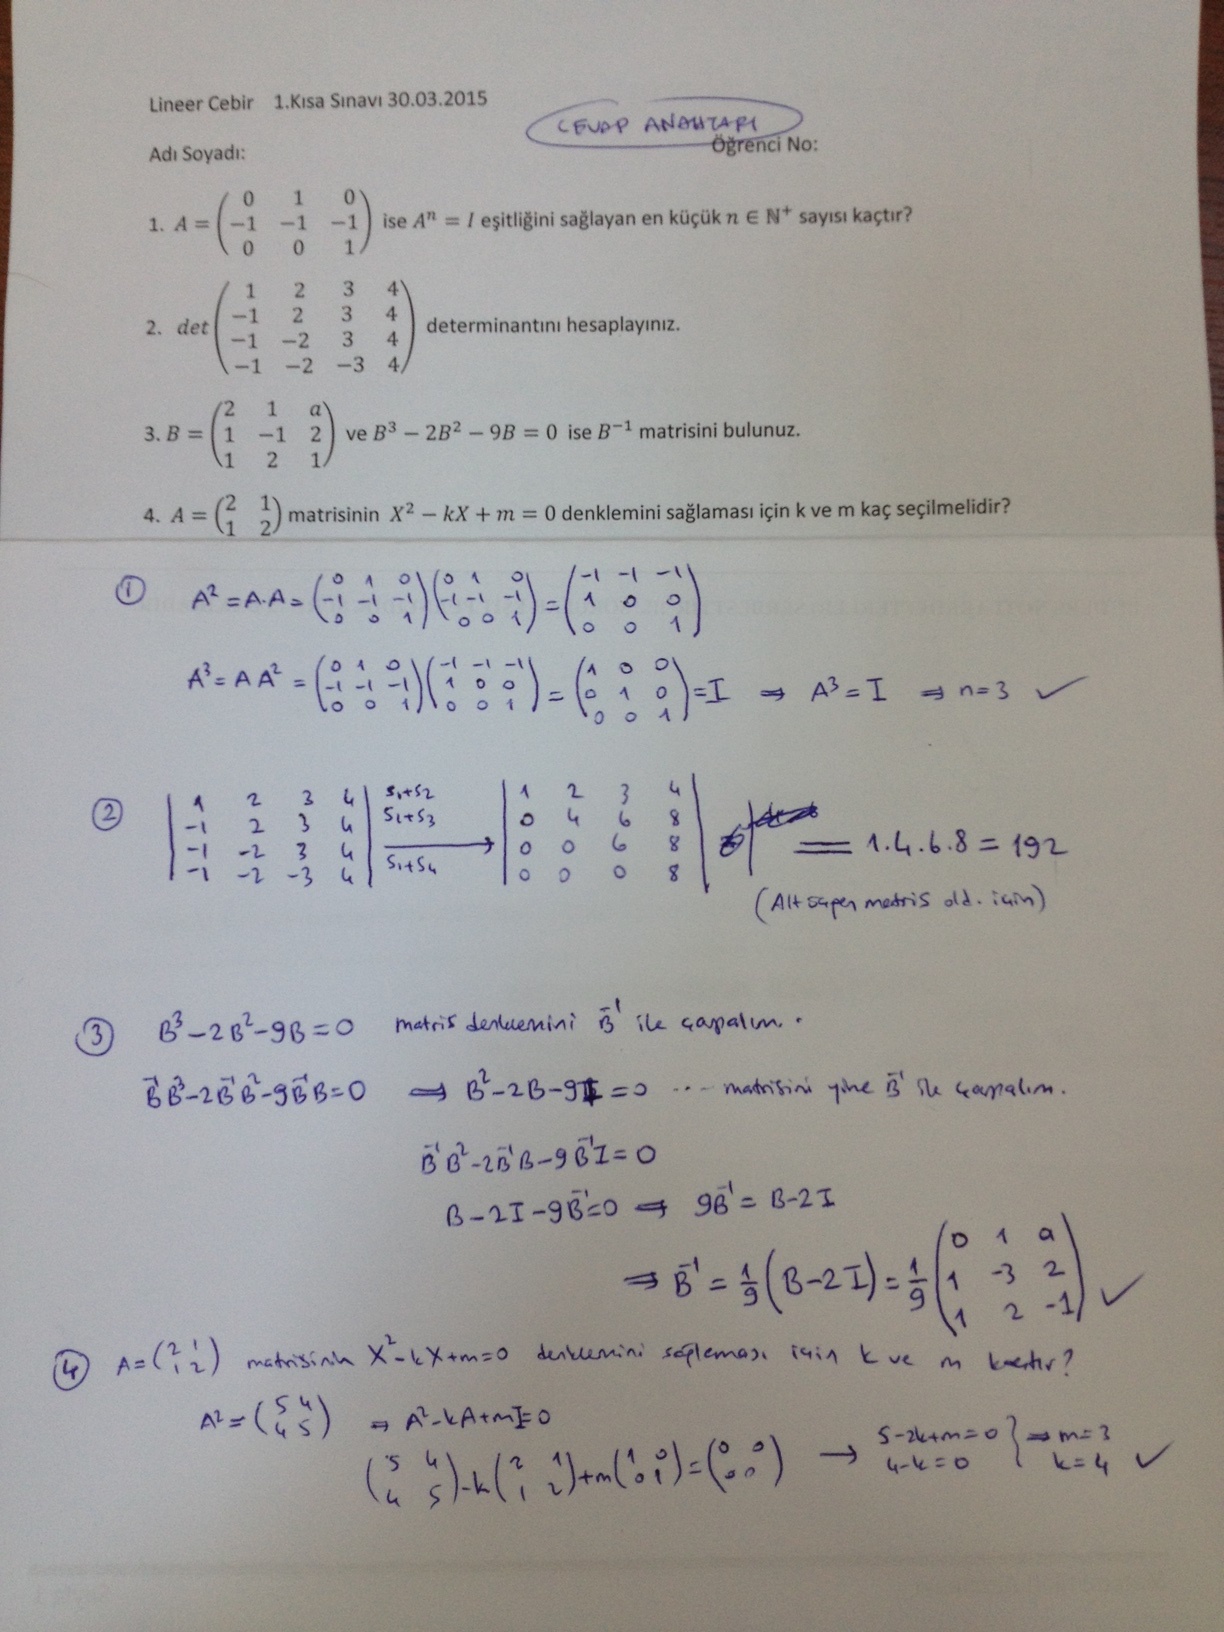 Lineer Cebir 1.Kısa Sınavı 30.03.2015
CEVAP ANAHTARI
Adı Soyadı: Öğrenci No:
1. A = (0 1 0; −1 −1 −1; 0 0 1) ise Aⁿ = I eşitliğini sağlayan en küçük n ∈ ℕ⁺ sayısı kaçtır?
2. det (1 2 3 4; −1 2 3 4; −1 −2 3 4; −1 −2 −3 4) determinantını hesaplayınız.
3. B = (2 1 a; 1 −1 2; 1 2 1) ve B³ − 2B² − 9B = 0 ise B⁻¹ matrisini bulunuz.
4. A = (2 1; 1 2) matrisinin X² − kX + m = 0 denklemini sağlaması için k ve m kaç seçilmelidir?
① A² = A.A = (0 1 0; -1 -1 -1; 0 0 1)(0 1 0; -1 -1 -1; 0 0 1) = (-1 -1 -1; 1 0 0; 0 0 1)
A³ = A A² = (0 1 0; -1 -1 -1; 0 0 1)(-1 -1 -1; 1 0 0; 0 0 1) = (1 0 0; 0 1 0; 0 0 1) = I ⇒ A³ = I ⇒ n=3 ✓
② |1 2 3 4; -1 2 3 4; -1 -2 3 4; -1 -2 -3 4| S₁+S₂ S₁+S₃ S₁+S₄ → |1 2 3 4; 0 4 6 8; 0 0 6 8; 0 0 0 8| = 1.4.6.8 = 192
(Alt üçgen matris old. için)
③ B³ - 2B² - 9B = 0 matris denklemini B⁻¹ ile çarpalım.
B⁻¹B³ - 2B⁻¹B² - 9B⁻¹B = 0 ⇒ B² - 2B - 9I = 0 ... matrisini yine B⁻¹ ile çarpalım.
B⁻¹B² - 2B⁻¹B - 9B⁻¹I = 0
B - 2I - 9B⁻¹ = 0 ⇒ 9B⁻¹ = B - 2I
⇒ B⁻¹ = 1/9 (B - 2I) = 1/9 (0 1 a; 1 -3 2; 1 2 -1) ✓
④ A = (2 1; 1 2) matrisinin X² - kX + m = 0 denklemini sağlaması için k ve m kaçtır?
A² = (5 4; 4 5) ⇒ A² - kA + mI = 0
(5 4; 4 5) - k(2 1; 1 2) + m(1 0; 0 1) = (0 0; 0 0) → 5-2k+m=0 4-k=0 } ⇒ m=3 k=4 ✓